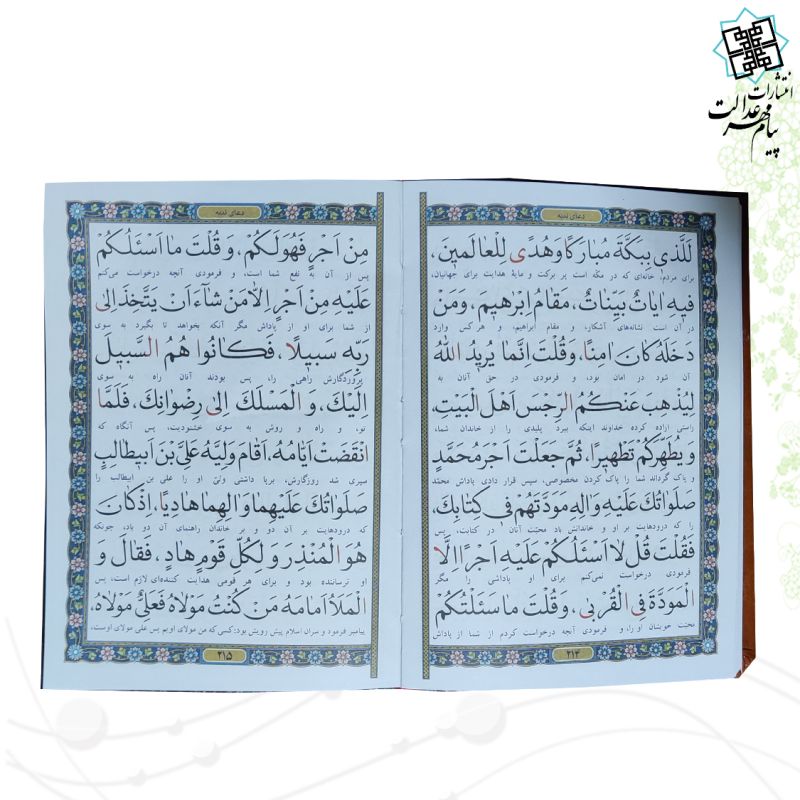 انتشارات
پیام مهر عدالت
دعای ندبه
لَلَّذی بِبَکَّةَ مُبارَکًا وَ هُدًی لِلْعالَمینَ،
برای مردم) خانه‌ای که در مکّه است پر برکت و مایهٔ هدایت برای جهانیان،
فیهِ ایاتٌ بَیِّناتٌ، مَقامُ اِبْرهیمَ، وَمَنْ
در آن است نشانه‌های آشکار، و مقام ابراهیم، و هر کس وارد
دَخَلَهُ کانَ امِنًا، وَقُلْتَ اِنَّما یُریدُ اللهُ
آن شود در امان بود، و فرمودی در حق آنان به
لِیُذْهِبَ عَنْکُمُ الرِّجْسَ اَهْلَ الْبَیْتِ،
راستی اراده کرده خداوند اینکه ببرد پلیدی را از خاندان شما،
وَ یُطَهِّرَکُمْ تَطْهیرًا، ثُمَّ جَعَلْتَ اَجْرَ مُحَمَّدٍ
و پاک گرداند شما را پاک کردن مخصوصی، سپس قرار دادی پاداش محمّد
صَلَواتُکَ عَلَیْهِ وَالِهِ مَوَدَّتَهُمْ فی کِتابِکَ،
را که درودهایت بر او و خاندانش باد محبّت آنان در کتابت، پس
فَقُلْتَ قُلْ لا اَسْئَلُکُمْ عَلَیْهِ اَجْرًا اِلَّا
فرمودی درخواست نمی‌کنم برای او پاداشی را مگر
الْمَوَدَّةَ فِی الْقُرْبی، وَقُلْتَ ما سَئَلْتُکُمْ
محبّت خویشان او را، و فرمودی آنچه درخواست کردم از شما از پاداش
۲۱۴
دعای ندبه
مِنْ اَجْرٍ فَهُوَلَکُمْ، وَ قُلْتَ ما اَسْئَلُکُمْ
پس از آن به نفع شما است، و فرمودی آنچه درخواست می‌کنم
عَلَیْهِ مِنْ اَجْرٍ اِلّامَنْ شآءَ اَنْ یَتَّخِذَ اِلی
از شما برای او از پاداش مگر آنکه بخواهد تا بگیرد به سوی
رَبِّهِ سَبیلًا، فَکانُوا هُمُ السَّبیلَ
پروردگارش راهی را، پس بودند آنان راه به سوی
اِلَیْکَ، وَ الْمَسْلَکَ اِلی رِضْوانِکَ، فَلَمَّا
تو، و راه و روش به سوی خشنودیت، پس آنگاه که
انْقَضَتْ اَیّامُهُ، اَقامَ وَلِیَّهُ عَلِیَّ بْنَ اَبیطالِبٍ
سپری شد روزگارش، برپا داشتی ولیّ او را علی بن ابیطالب را
صَلَواتُکَ عَلَیْهِما وَ الِهِما هادِیًا، اِذْ کانَ
که درودهایت بر آن دو و بر خاندان راهنمای آن دو باد، چونکه
هُوَ الْمُنْذِرَ وَ لِکُلِّ قَوْمٍ هادٍ، فَقالَ وَ
او ترساننده بود و برای هر قومی هدایت کننده‌ای لازم است، پس
الْمَلَأُ اَمامَهُ مَنْ کُنْتُ مَوْلاهُ فَعَلِیٌّ مَوْلاهُ،
پیامبر فرمود و سران اسلام پیش رویش بود: کسی که من مولای اویم پس علی مولای اوست،
۲۱۵